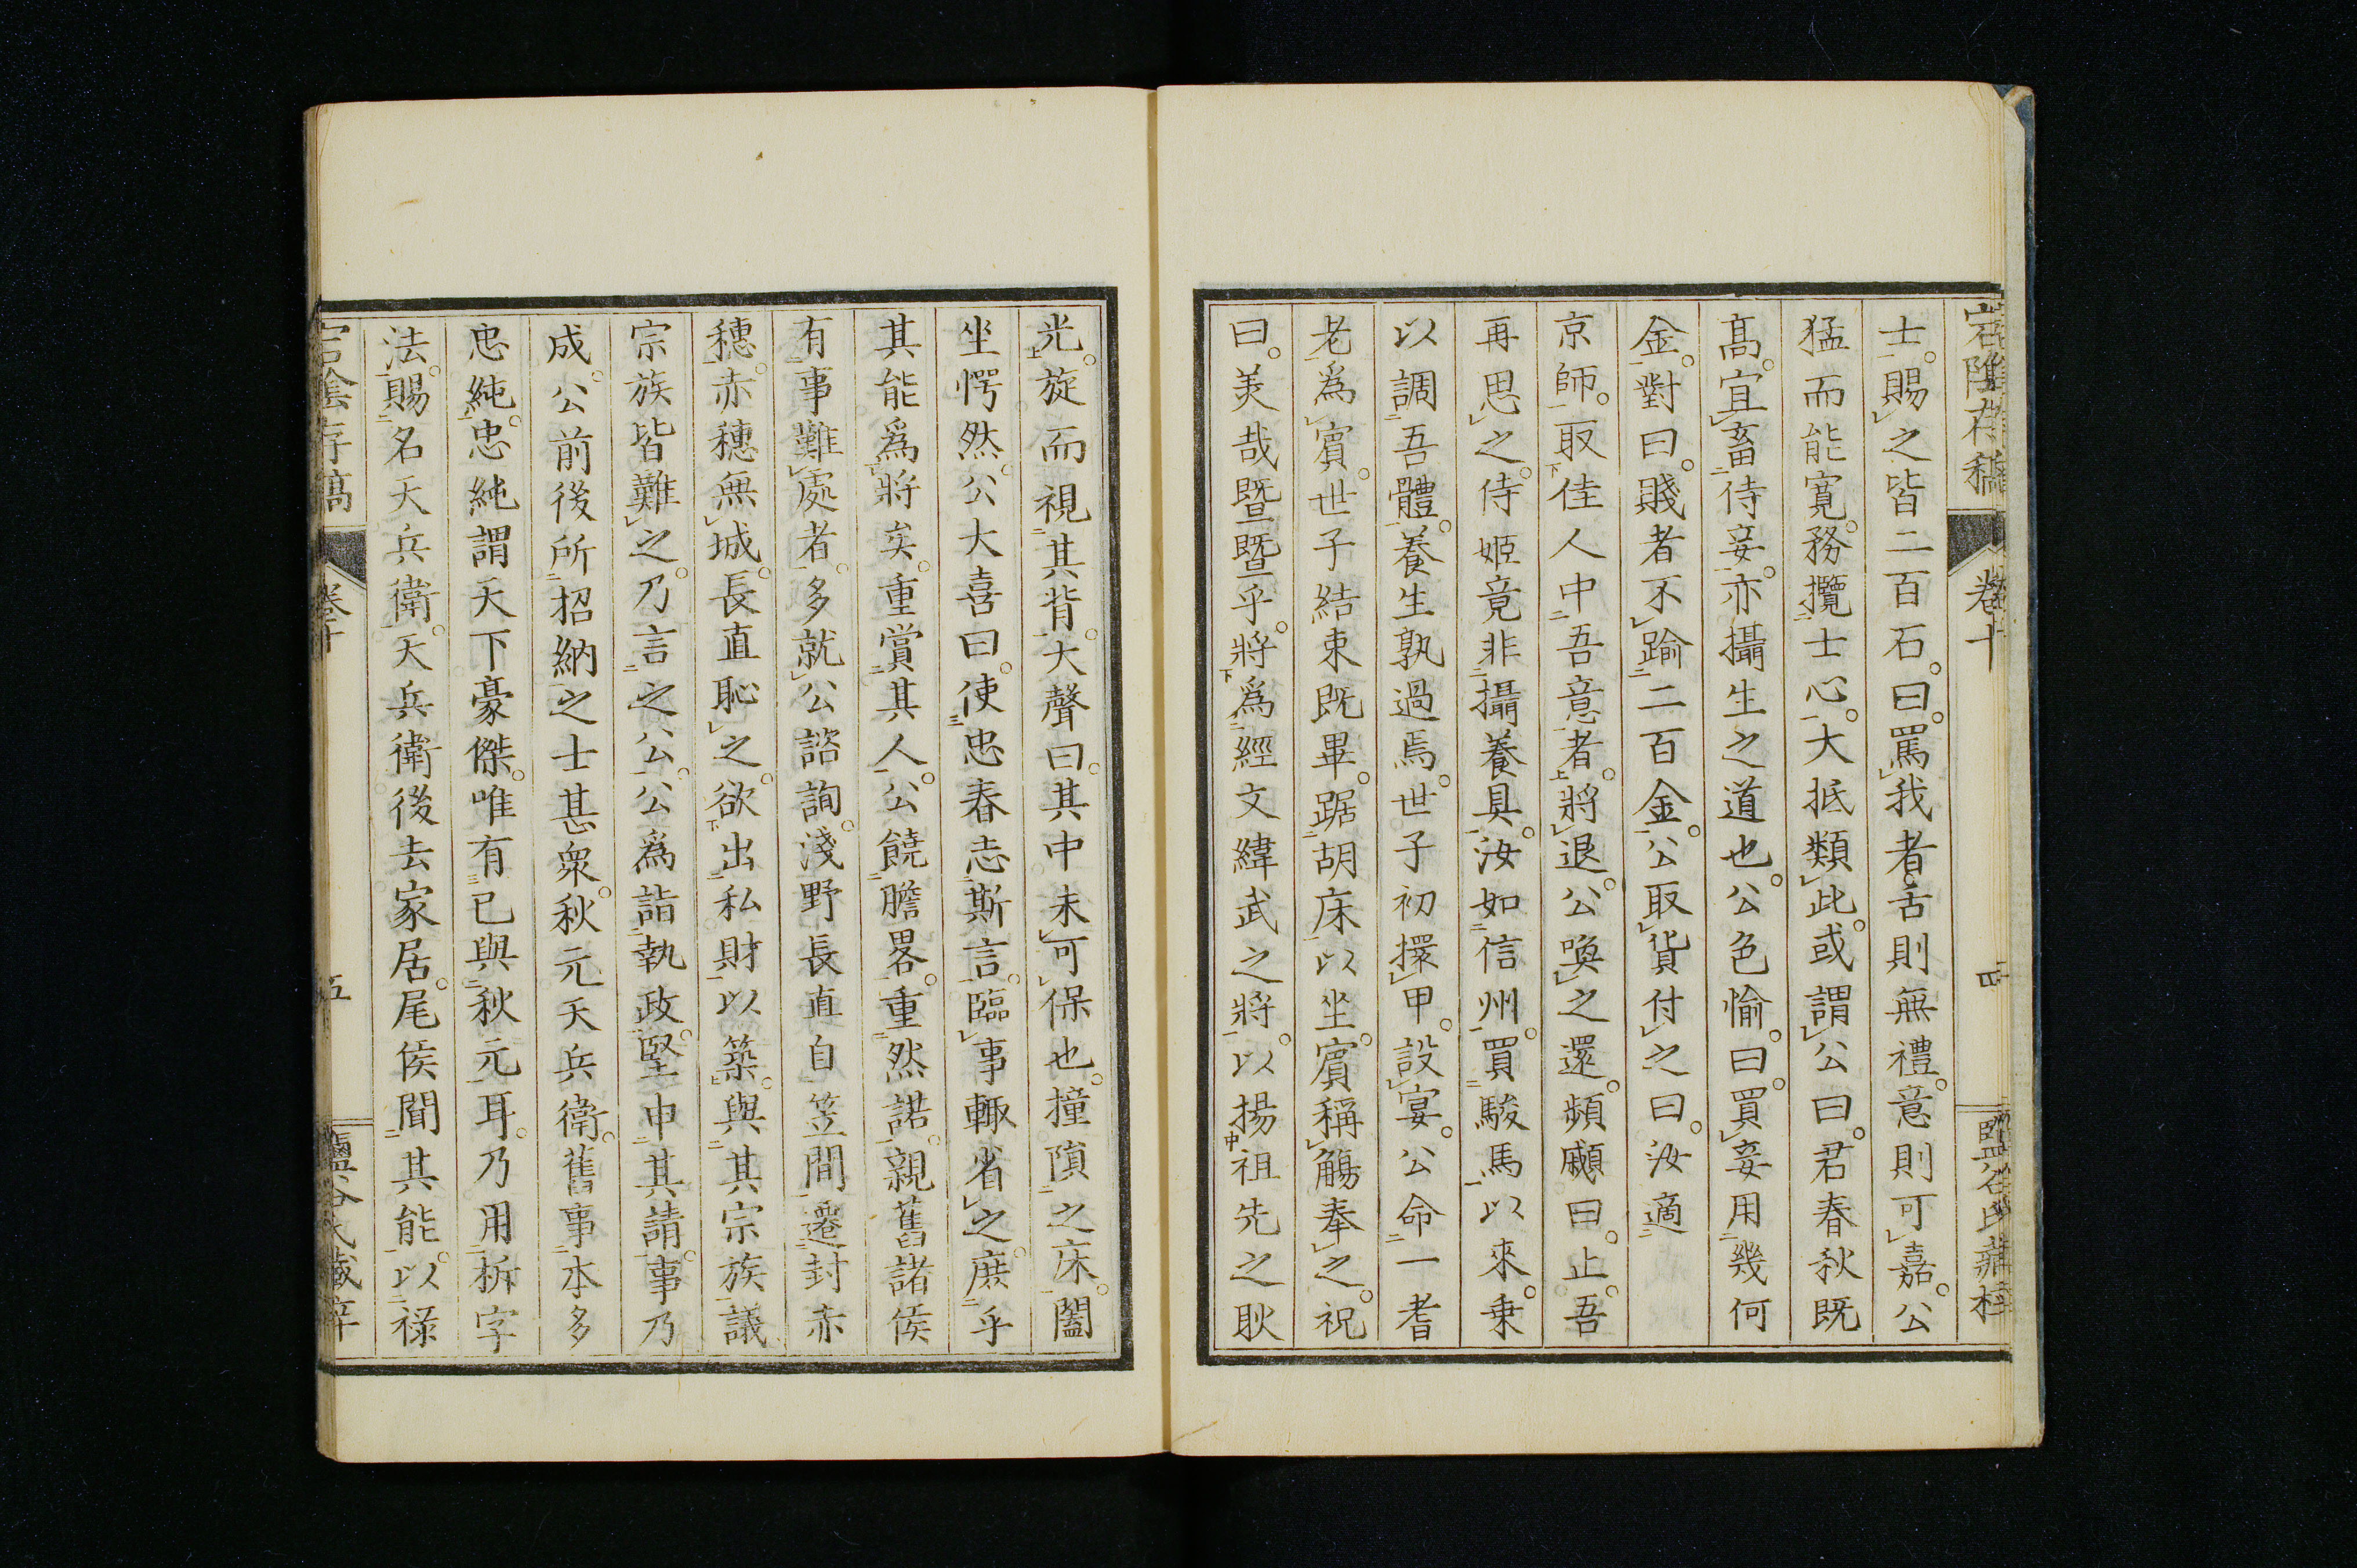 宕陰存稿
卷十
四
鹽谷氏藏梓
士。賜之皆二百石。曰。罵我者。舌則無禮。意則可嘉。公
猛而能寬。務攬士心。大抵類此。或謂公曰。君春秋既
高。宜畜侍妾。亦攝生之道也。公色愉。曰。買妾用幾何
金。對曰。賤者不踰二百金。公取貨付之曰。汝適
京師。取佳人中吾意者。將退。公喚之還。頻顣曰。止。吾
再思之。侍姬竟非攝養具。汝如信州。買駿馬以來。乗
以調吾體。養生孰過焉。世子初擐甲。設宴。公命一耆
老爲賓。世子結束既畢。踞胡床以坐。賓稱觴奉之。祝
曰。美哉暨暨乎。將爲經文緯武之將。以揚祖先之耿
光。旋而視其背。大聲曰。其中未可保也。撞隕之床。闔
坐愕然。公大喜曰。使忠春志斯言。臨事輙省之。庶乎
其能爲將矣。重賞其人。公饒膽畧。重然諾。親舊諸侯
有事難處者。多就公諮詢。淺野長直自笠間遷封赤
穗。赤穗無城。長直恥之。欲出私財以築。與其宗族議
宗族皆難之。乃言之公。公爲詣執政。堅申其請。事乃
成。公前後所招納之士甚衆。秋元天兵衞。舊事本多
忠純。忠純謂天下豪傑。唯有已與秋元耳。乃用柝字
法。賜名天兵衞。天兵衞後去家居。尾侯聞其能。以祿
宕陰存稿
卷十
五
鹽谷氏藏梓